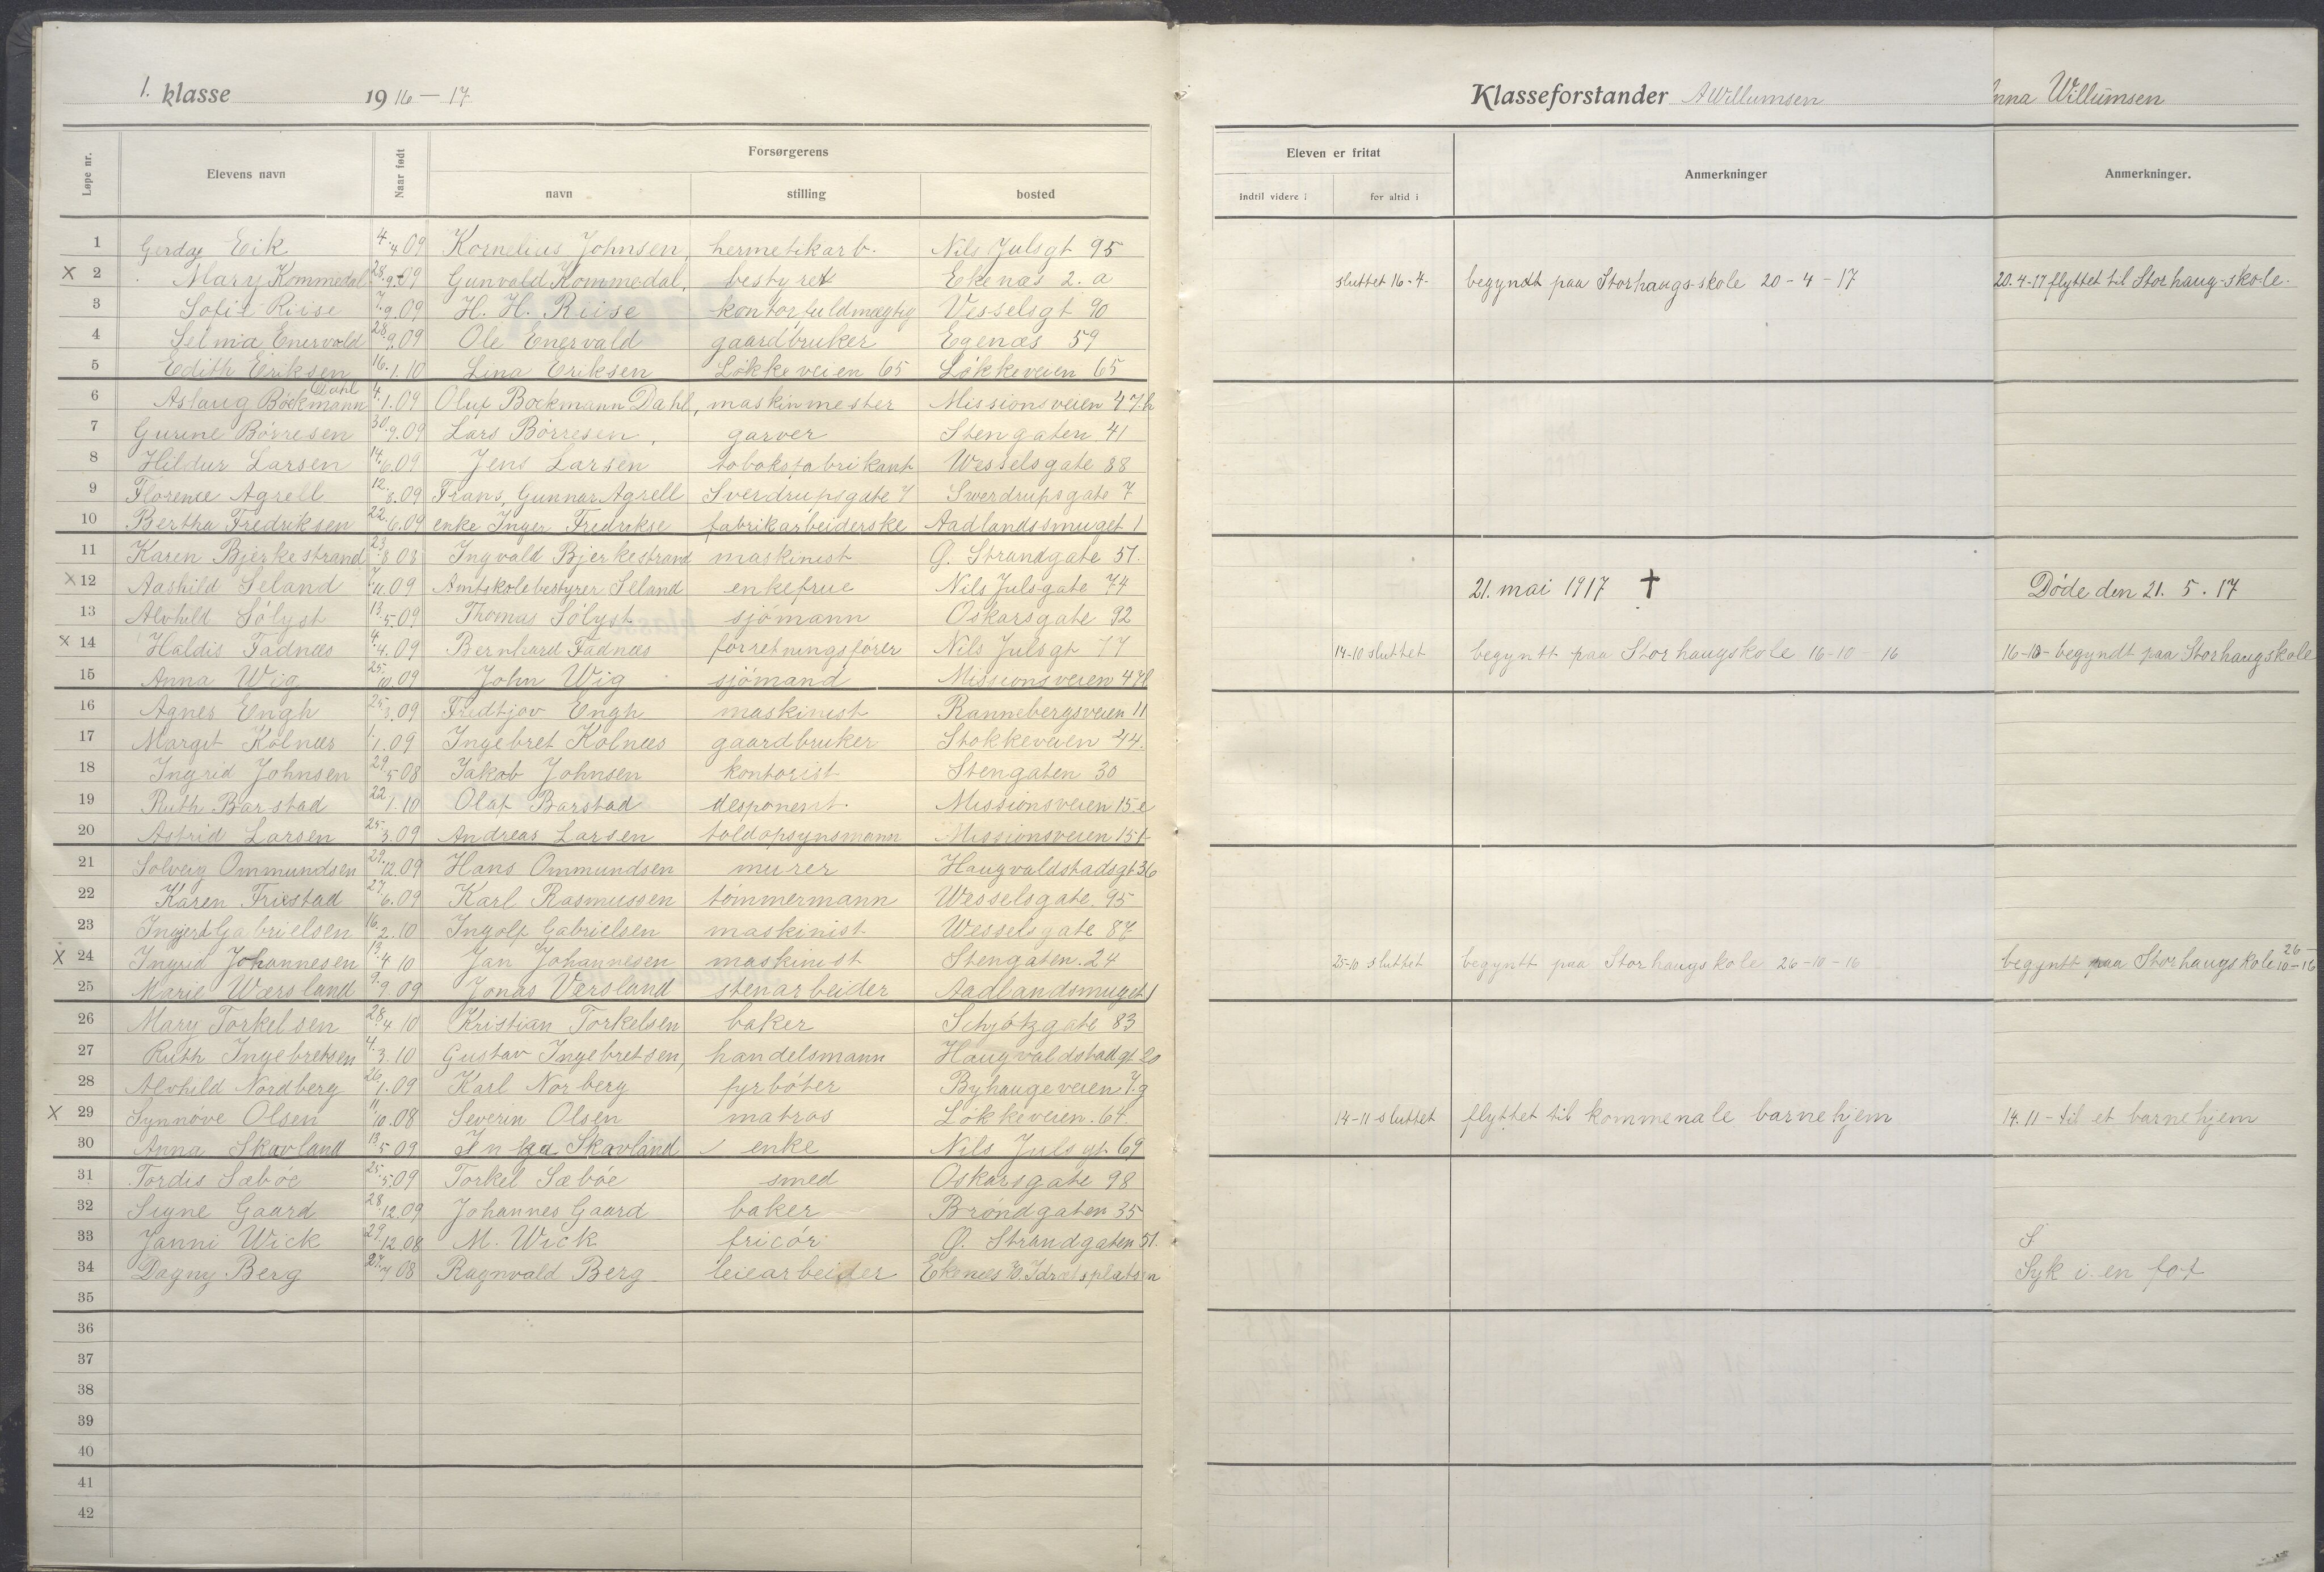 1. klasse 1916 – 17
Klasseforstander AWillumsen
nna Willumsen
Løpe nr. Elevens navn Naar født Forsørgerens
navn stilling bosted
Eleven er fritat Anmerkninger Anmerkninger.
Indtil videre i for altid i
1 Gerda Eik 4.4.09 Kornelius Johnsen, hermetikarb. Nils Julsgt 95
X 2 Mary Kommedal 28.9.09 Gunvald Kommedal, bestyrer Ekenæs 2. a sluttet 16-4- begyndt paa Storhaugs-skole 20-4-17 20.4-17 flyttet til Storhaug-skole.
3 Sofie Riise 7.9.09 H. H. Riise kontorfuldmægtig Vesselsgt 90
4 Selma Enervold 28.9.09 Ole Enervald gaardbruker Egenæs 59
5 Edith Eriksen 16.1.10 Lina Eriksen Løkkeveien 65 Løkkeveien 65
6 Aslaug Böckmann Dahl 4.1.09 Oluf Bockmann Dahl, maskinmester Missionsveien 47.b
7 Gurine Börresen 30.9.09 Lars Börresen, garver Stengaten 41
8 Hildur Larsen 14.6.09 Jens Larsen tobaksfabrikant Wesselsgate 88
9 Florence Agrell 12.8.09 Frans Gunnar Agrell Sverdrupsgate 7 Swerdrupsgate 7
10 Bertha Fredriksen 22.6.09 enke Inger Fredrikse fabrikarbeiderske Aadlandssmuget 1
11 Karen Bjerkestrand 23.8.08 Ingvald Bjerkestrand maskinist Ø. Strandgate 51.
X 12 Aashild Seland 7.11.09 Amtskolebestyrer Seland enkefrue Nils Julsgate 74 21. mai 1917 † Døde den 21. 5. 17
13 Alvhild Sölyst 13.5.09 Thomas Sölyst sjömann Oskarsgate 92
X 14 Haldis Fadnæs 4.4.09 Bernhard Fadnæs forretningsfører Nils Julsgt 77 14-10 sluttet begyntt paa Storhaugskole 16-10-16 16-10- begyndt paa Storhaugskole
15 Anna Wig 25.10.09 John Wig sjömand Missionsveien 47b
16 Agnes Engh 25.3.09 Fredtjov Engh maskinist Rannebergsveien 11
17 Margit Kolnæs 1.1.09 Ingebret Kolnæs gaardbruker Stokkeveien 44.
18 Ingrid Johnsen 29.5.08 Jakob Johnsen kontorist Stengaten 30
19 Ruth Barstad 22.1.10 Olaf Barstad desponent. Missionsveien 15 e
20 Astrid Larsen 25.3.09 Andreas Larsen toldopsynsmann Missionsveien 15 f
21 Solveig Ommundsen 29.12.09 Hans Ommundsen murer Haugvaldstadsgt 36
22 Karen Friestad 27.6.09 Karl Rasmussen tömmermann Wesselsgate 95
23 Ingjerd Gabrielsen 16.2.10 Ingolf Gabrielsen maskinist Wesselsgate 87
X 24 Ingrid Johannesen 13.4 10 Jan Johannesen maskinist Stengaten. 24 25-10 sluttet begyntt paa Storhaugskole 26-10-16 begyntt paa Storhaugskole 26-10-16
25 Marie Wærsland 9.9 09 Jonas Værsland stenarbeider Aadlandsmuget 1
26 Mary Torkelsen 28.4.10 Kristian Torkelsen baker Schjötzgate 83
27 Ruth Ingebretsen 4.3.10 Gustav Ingebretsen, handelsmann Haugvaldstadgt 20
28 Alvhild Nordberg 26.1.09 Karl Norberg fyrböter Byhaugeveien 7.g
X 29 Synnöve Olsen 11.10.08 Severin Olsen matros Løkkeveien. 64. 14-11-sluttet flyttet til kommenale barnehjem 14.11 - til et barnehjem
30 Anna Skavland 13.5 09 Inga Skavland enke Nils Julsgt. 69
31 Tordis Sæböe 25.5.09 Torkel Sæböe smed Oskarsgate 98
32 Signe Gaard 28.12.09 Johannes Gaard baker Bröndgaten 35
33 Janni Wick 29.12.08 M. Wick fricör Ø. Strandgaten 51. S
34 Dagny Berg 27.7 08 Ragnvald Berg leiearbeider Ekenæs Idrætsplatsen Syk i en fot
35
36
37
38
39
40
41
42